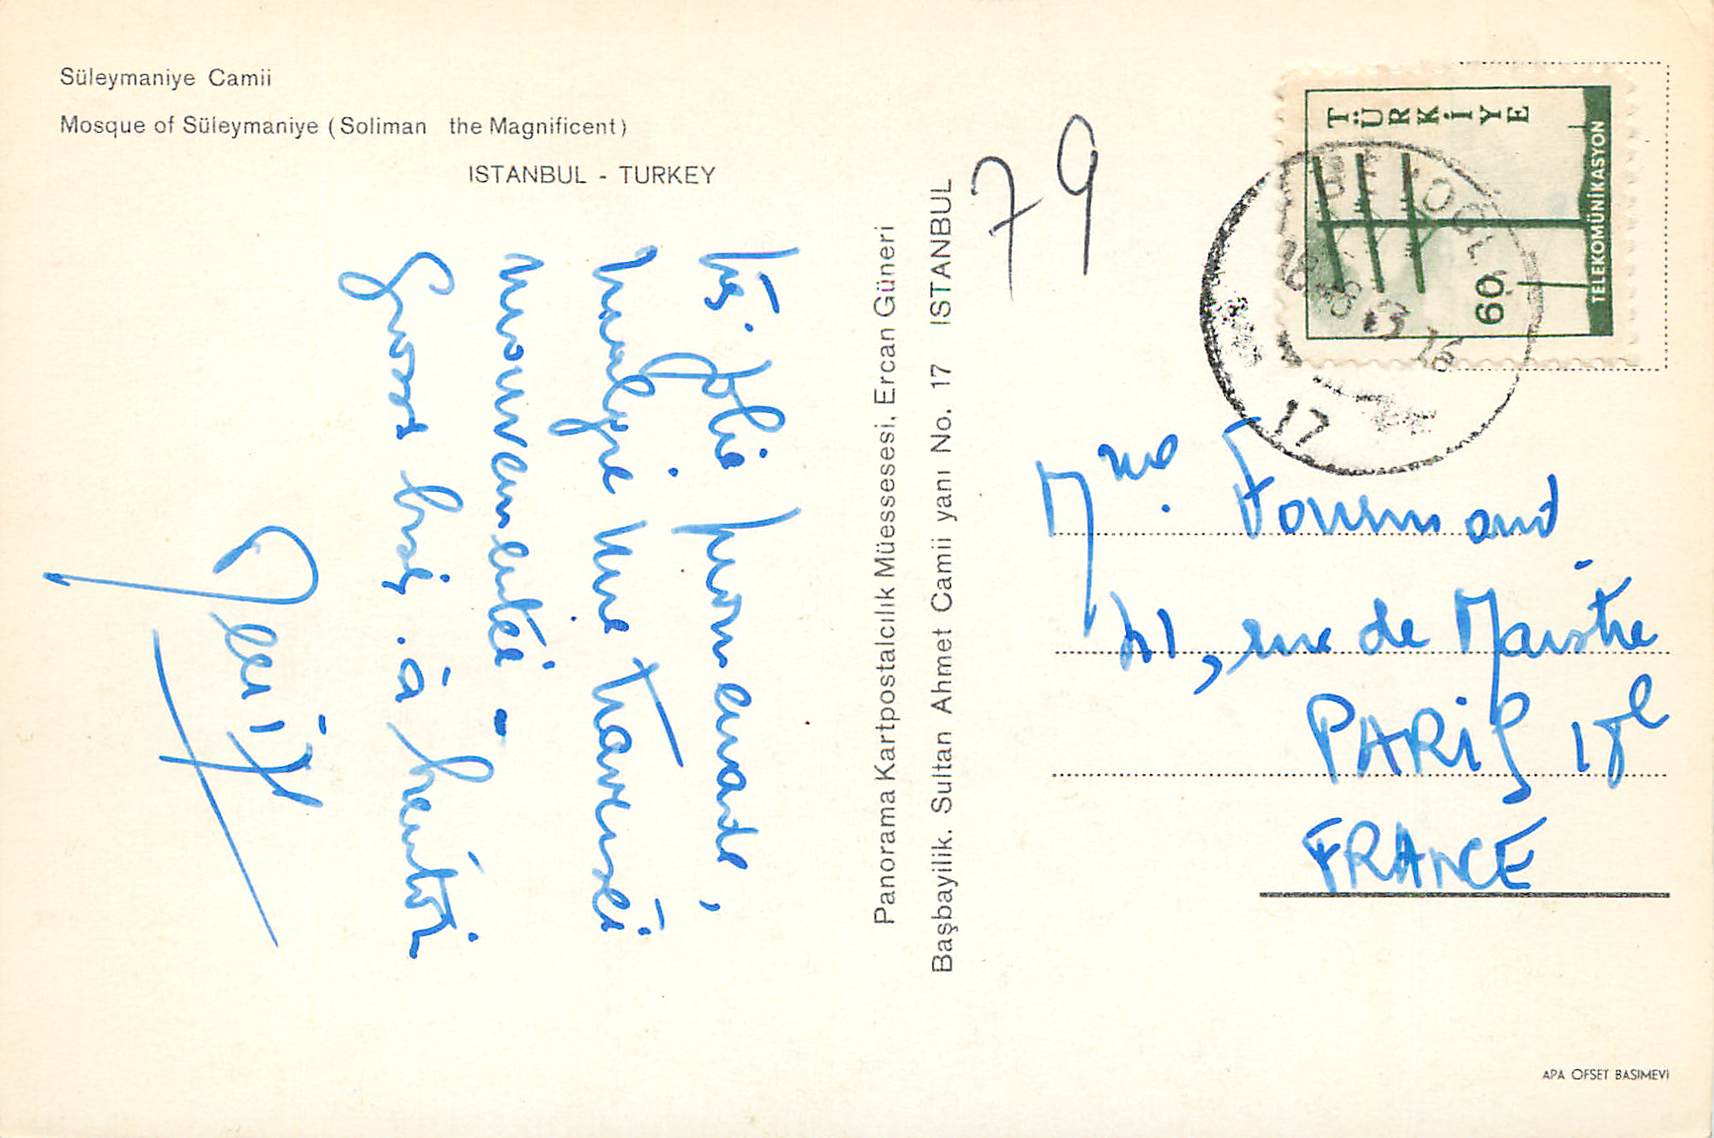 Süleymaniye Camii
Mosque of Süleymaniye (Soliman the Magnificent)
ISTANBUL - TURKEY
Très jolie promenade,
malgré une traversée
mouvementée.
Grosses bises. à bientôt
Panorama Kartpostalcılık Müessesesi, Ercan Güneri
Başbayilik. Sultan Ahmet Camii yanı No. 17 ISTANBUL
79
TÜRKİYE
60
TELEKOMÜNİKASYON
BEYOĞLU
18-8 13 16
17
Mme.
rue de Maistre
PARIS 18e
FRANCE
APA OFSET BASIMEVİ